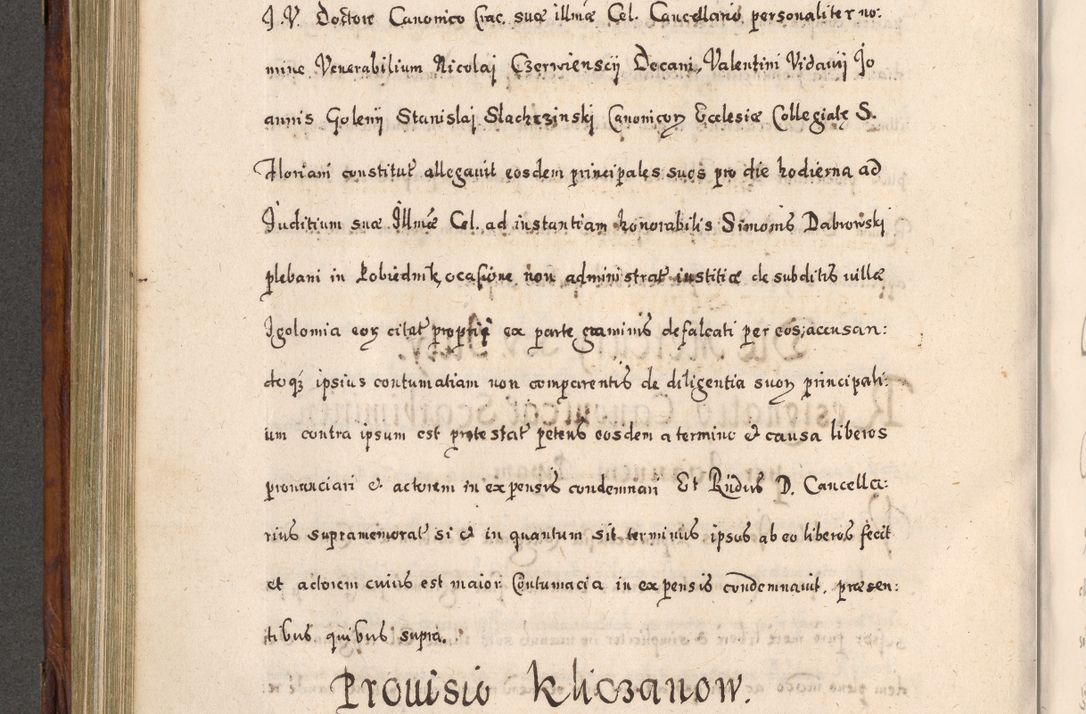 J. V. Doctore Canonico Crac. suæ illmæ Cel. Cancellario personaliter no:
mine Venerabilium Nicolaj Czerwienscij Decani, Valentini Vidavij Jo
annis Golenij Stanislaj Slachczinski Canonicorꝝ Ecclesiæ Collegiatę S.
Floriani constitut allegauit eosdem principales suos pro die hodierna ad
Juditium suæ Illmæ Cel. ad instantiam honorabilis Simonis Dabrowski
plebani in Łobiednik, ocasione non administrat iustitiæ de subditis uillæ
Igolomia eoꝝ citat propria ex parte graminis defalcati per eos, accusan:
doqꝫ ipsius contumatiam non comparentis de diligentia suoꝝ principali:
um contra ipsum est protestat petens eosdem a termino & causa liberos
pronunciari & actorem in expensis condemnari Et Rndus D. Cancella:
rius supramemorat si & in quantum sit terminus ipsos ab eo liberos fecit
et actorem cuius est maior Contumacia in expensis condemnauit, præsen:
tibus quibus supra.
Prouisio Kliczanow.